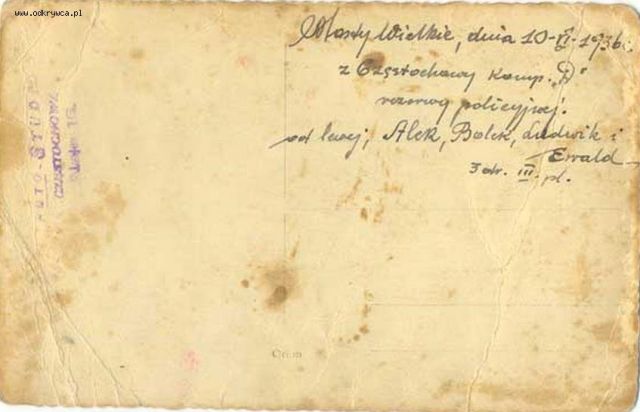 www.odkrywca.pl
Mosty Wielkie, dnia 10-VI-1936r.
z Częstochowy Komp. "D"
rezerwy policyjnej.
od lewej; Alek, Bolek, Ludwik i
Ewald
3 dr. III. pl.
FOTO-STUD
CZĘSTOCHOWA
Orion